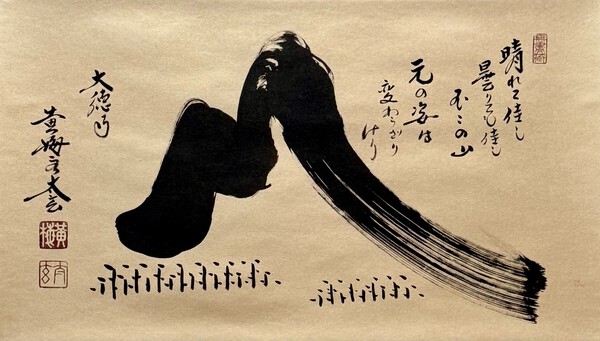 晴れて佳し
曇りても佳し
不二の山
元の姿は
変わらざり
けり
大徳寺
黄梅
黄梅